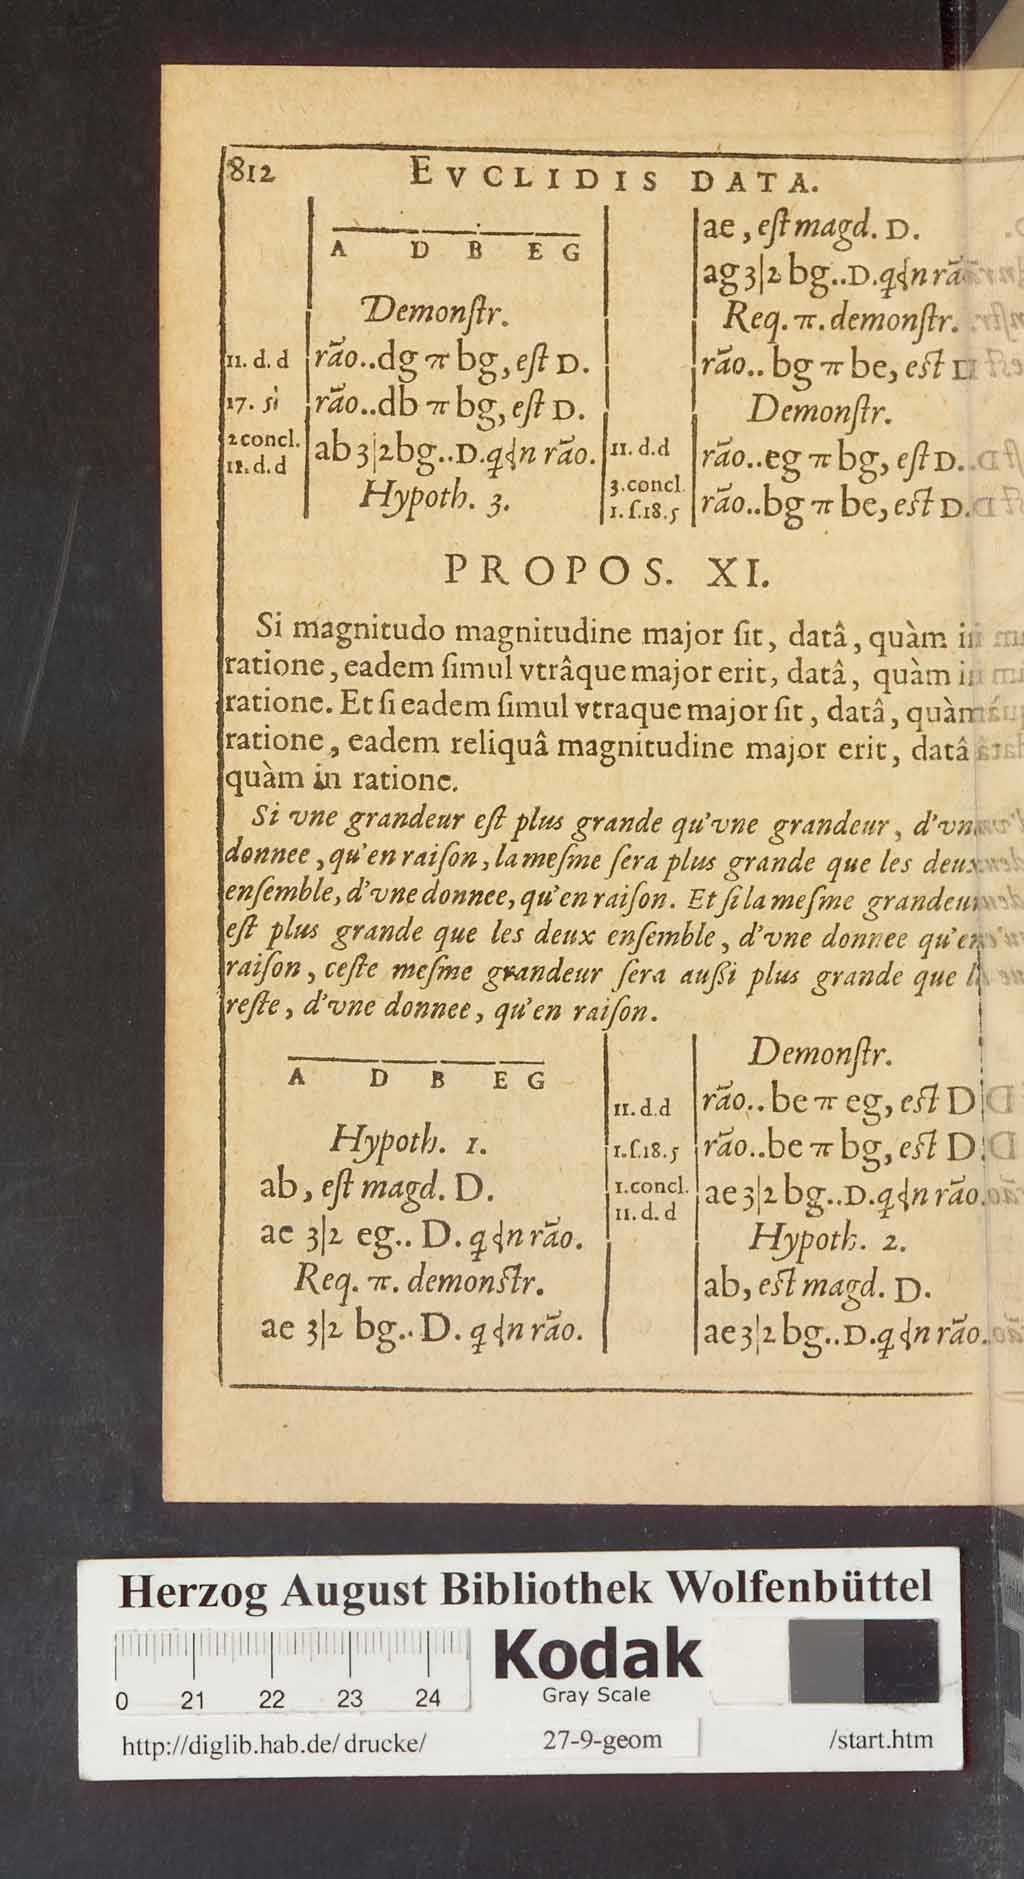 812 EVCLIDIS DATA.
A D B E G
Demonſtr.
11. d. d rão..dg π bg, eſt D.
17. si rão..db π bg, eſt D.
2 concl.
11. d. d ab 3|2 bg..D.q⟨n rão.
Hypoth. 3.
ae, eſt magd. D.
ag 3|2 bg..D.q⟨n rão
Req. π. demonſtr.
rão.. bg π be, est D
Demonſtr.
11. d. d rão..eg π bg, eſt D.
3. concl.
1. ſ. 18. 5 rão..bg π be, est D.
PROPOS. XI.
Si magnitudo magnitudine major ſit, datâ, quàm in
ratione, eadem ſimul vtrâque major erit, datâ, quàm in
ratione. Et ſi eadem ſimul vtraque major ſit, datâ, quàm
ratione, eadem reliquâ magnitudine major erit, datâ
quàm in ratione.
Si vne grandeur eſt plus grande qu'vne grandeur, d'vne
donnee, qu'en raiſon, la meſme ſera plus grande que les deux
enſemble, d'vne donnee, qu'en raiſon. Et ſi la meſme grandeur
eſt plus grande que les deux enſemble, d'vne donnee qu'en
raiſon, ceſte meſme grandeur ſera außi plus grande que le
reſte, d'vne donnee, qu'en raiſon.
A D B E G
Hypoth. 1.
ab, eſt magd. D.
ae 3|2 eg.. D. q⟨n rão.
Req. π. demonstr.
ae 3|2 bg.. D. q⟨n rão.
Demonſtr.
11. d. d rão.. be π eg, est D
1. ſ. 18. 5 rão..be π bg, est D.
1. concl.
11. d. d ae 3|2 bg..D.q⟨n rão.
Hypoth. 2.
ab, est magd. D.
ae 3|2 bg..D.q⟨n rão.
Herzog August Bibliothek Wolfenbüttel
Kodak
Gray Scale
0 21 22 23 24
http://diglib.hab.de/ drucke/ 27-9-geom /start.htm